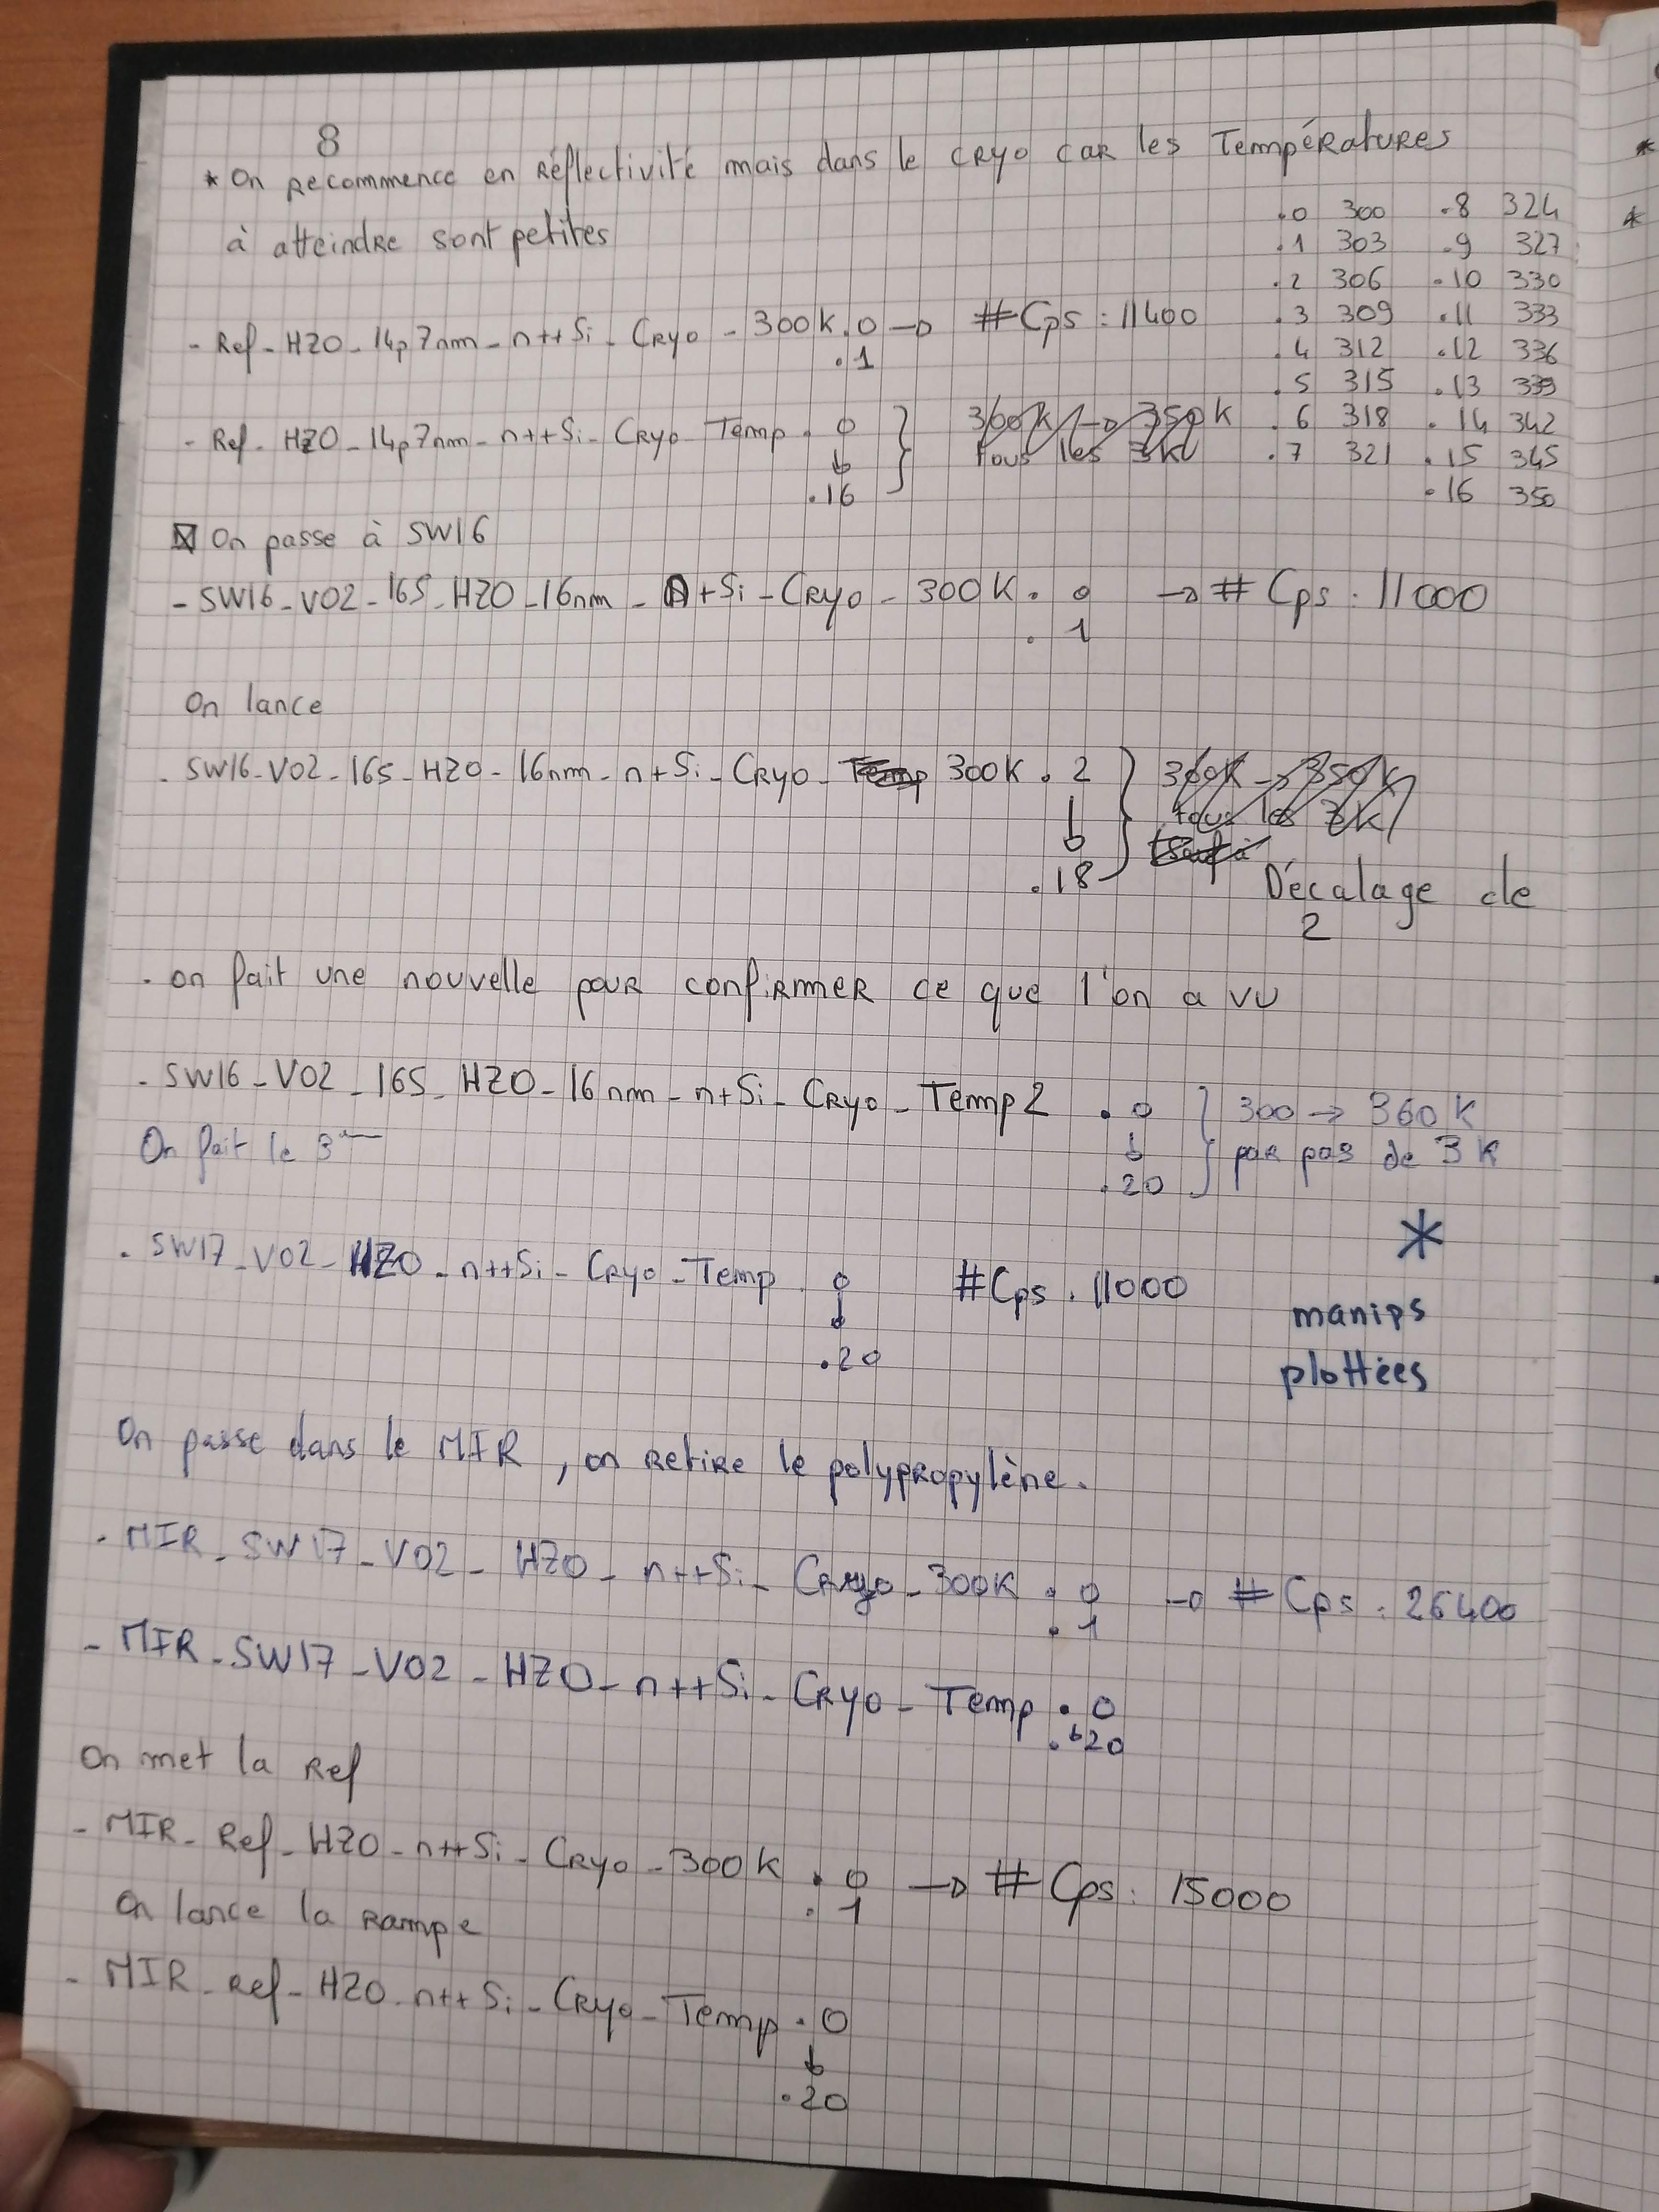 8
* On recommence en Réflectivité mais dans le cryo car les Températures
à atteindre sont petites
.0 300 .8 324
.1 303 .9 327
.2 306 .10 330
.3 309 .11 333
.4 312 .12 336
.5 315 .13 339
.6 318 .14 342
.7 321 .15 345
.16 350
- Ref_HZO_14p7nm_n++Si_Cryo_300K.0 → #Cps : 11400
.1
- Ref_HZO_14p7nm_n++Si_Cryo_Temp.0 300K → 350K
↓ tous les 3K
.16
On passe à SW16
- SW16_VO2_16S_HZO_16nm_n+Si_Cryo_300K.0 → # Cps : 11000
.1
On lance
- SW16_VO2_16S_HZO_16nm_n+Si_Cryo_Temp 300K.2 300K → 350K
↓ tous les 3K
.18
Décalage de
2
. on fait une nouvelle pour confirmer ce que l'on a vu
- SW16_VO2_16S_HZO_16nm_n+Si_Cryo_Temp2 .0 300 → 360K
↓ par pas de 3K
.20
On fait le 3ème
. SW17_VO2_HZO_n++Si_Cryo_Temp.0 #Cps : 11000
↓
.20
*
manips
plottées
On passe dans le MIR, on retire le polypropylène.
- MIR_SW17_VO2_HZO_n++Si_Cryo_300K.0 → # Cps : 26400
.1
- MIR_SW17_VO2_HZO_n++Si_Cryo_Temp.0
↓
.20
On met la Ref
- MIR_Ref_HZO_n++Si_Cryo_300K.0 → # Cps : 15000
.1
On lance la rampe
- MIR_Ref_HZO_n++Si_Cryo_Temp.0
↓
.20